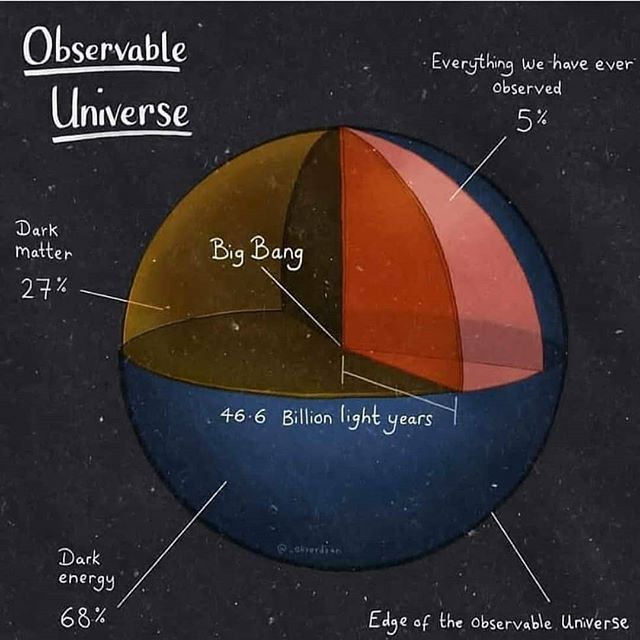 Observable
Universe
Everything we have ever
observed
5%
Dark
matter
27%
Big Bang
46.6 Billion light years
Dark
energy
68%
Edge of the observable Universe